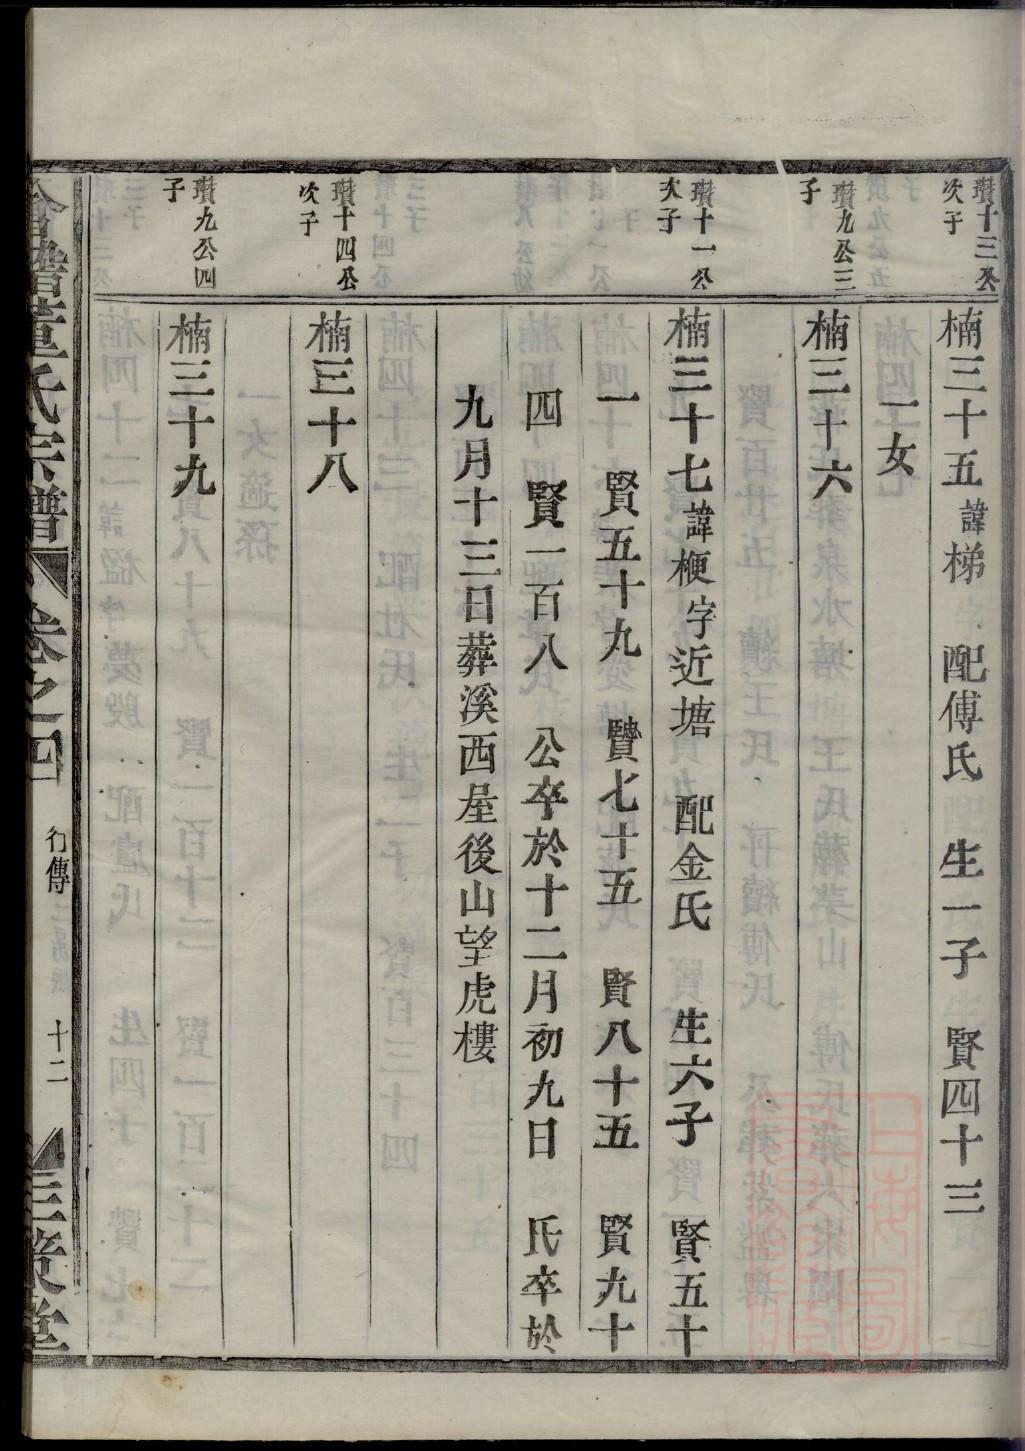 瓚十三公
次子
楠三十五 諱梯 配傅氏 生一子 賢四十三
一女
瓚九公三
子
楠三十六
瓚十一公
次子
楠三十七 諱梗 字近塘 配金氏 生六子 賢五十
一 賢五十九 賢七十五 賢八十五 賢九十
四 賢一百八 公卒於十二月初九日 氏卒於
九月十三日葬溪西屋後山望虎樓
瓚十四公
次子
楠三十八
瓚九公四
子
楠三十九
董氏宗譜 卷之四 行傳 十二